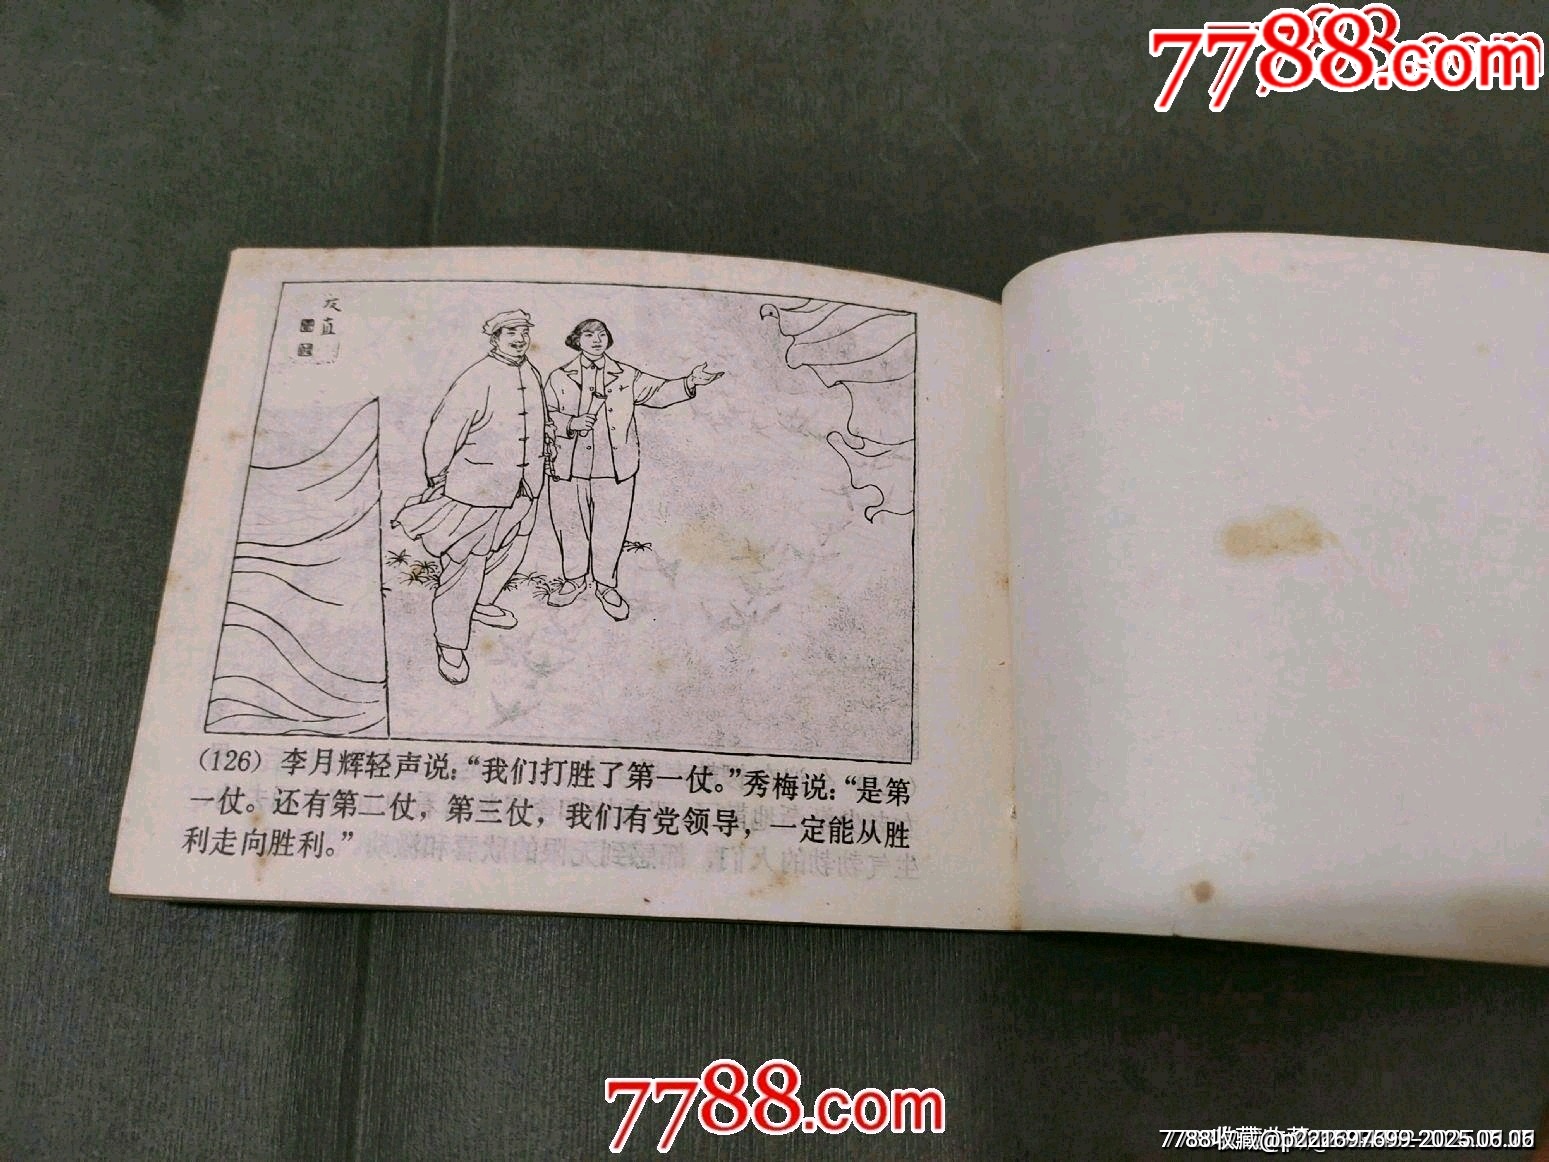 7788.com
友
直
(126) 李月辉轻声说：“我们打胜了第一仗。”秀梅说：“是第
一仗。还有第二仗，第三仗，我们有党领导，一定能从胜
利走向胜利。”
7788.com